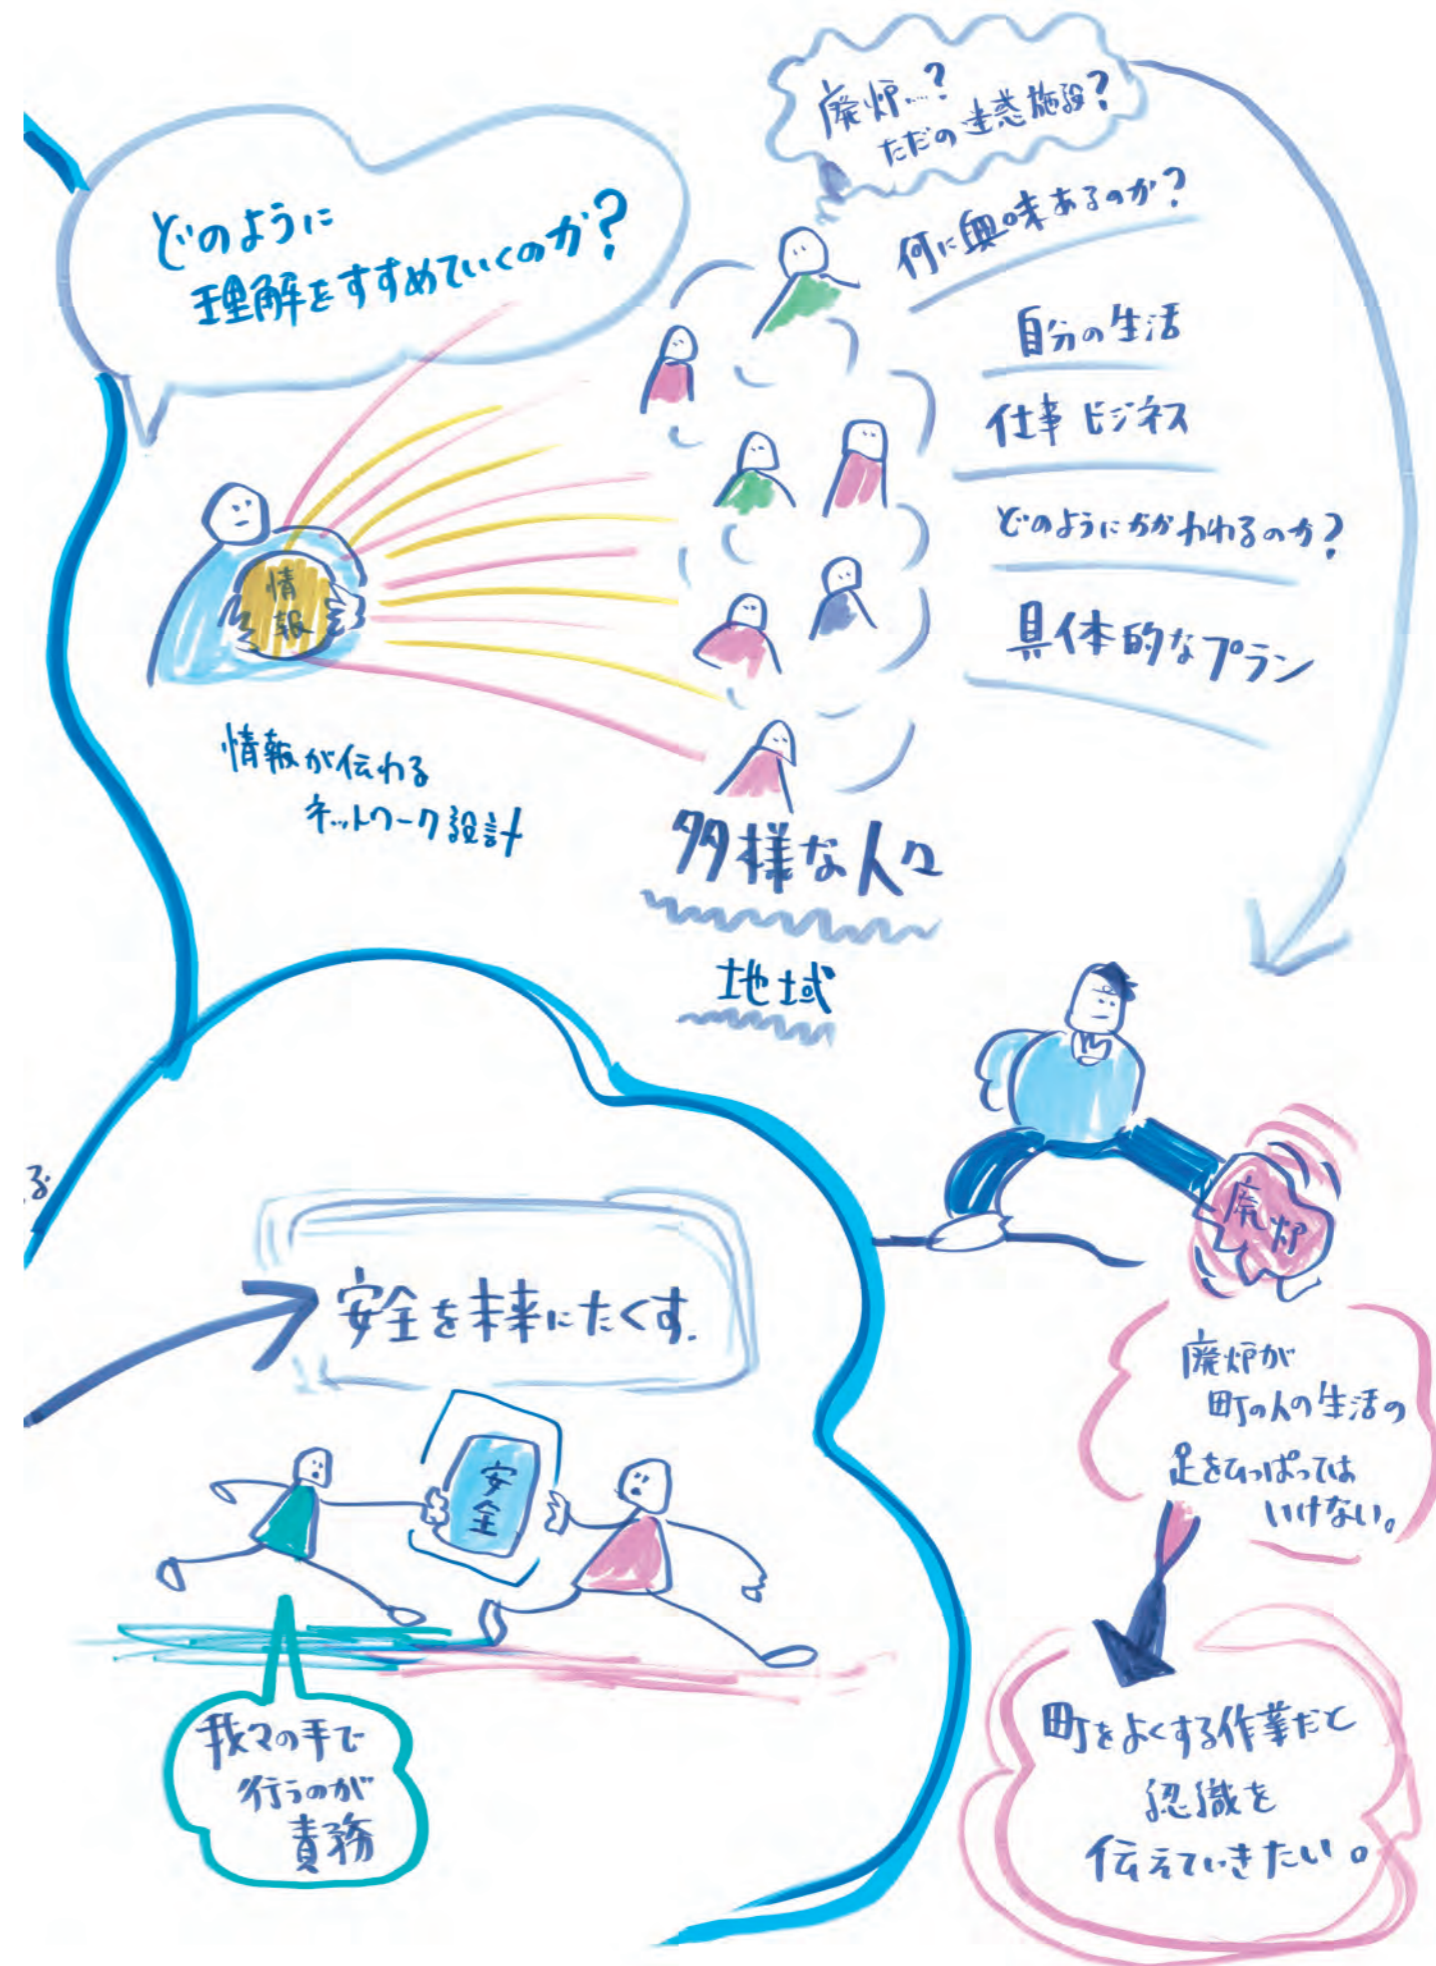 廃炉…?
ただの迷惑施設?
どのように
理解をすすめていくのか?
何に興味あるのか?
自分の生活
仕事 ビジネス
どのようにかかわれるのか?
具体的なプラン
情報
情報が伝わる
ネットワーク設計
多様な人々
地域
廃炉
廃炉が
町の人の生活の
足をひっぱっては
いけない。
町をよくする作業だと
認識を
伝えていきたい。
る
安全を未来にたくす.
安全
我々の手で
行うのが
責務